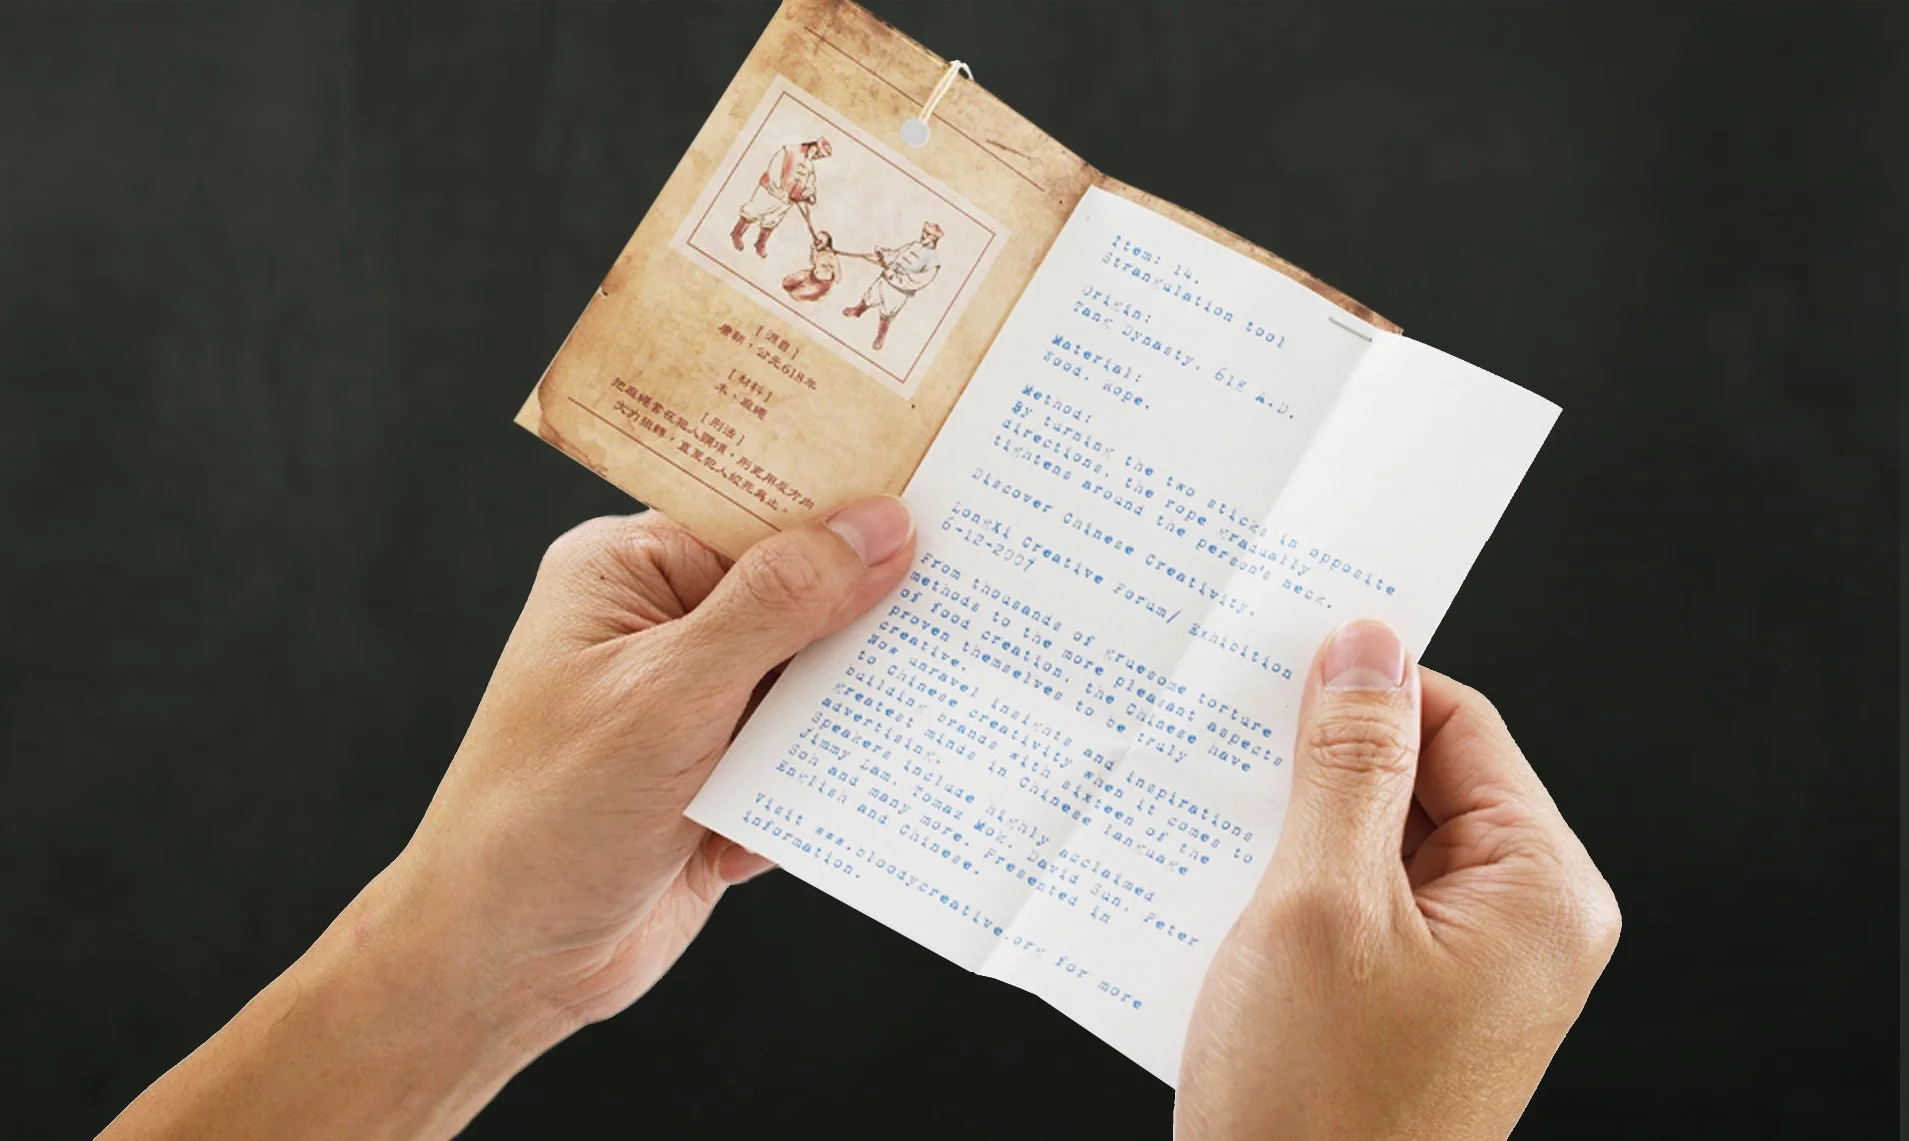 [ 源自 ]
唐朝，公元618年
[ 材料 ]
木、麻繩
[ 刑法 ]
把麻繩套在犯人頸項，刑吏用反方向
大力扭轉，直至犯人縊死為止。
Item: 14.
Strangulation tool
Origin:
Tang Dynasty, 618 A.D.
Material:
Wood, Rope.
Method:
By turning the two sticks in opposite
directions, the rope gradually
tightens around the person's neck.
Discover Chinese Creativity.
LongXi Creative Forum/ Exhibition
6-12-2007
From thousands of gruesome torture
methods to the more pleasant aspects
of food creation, the Chinese have
proven themselves to be truly
creative.
Now unravel insights and inspirations
to Chinese creativity when it comes to
building brands with sixteen of the
greatest minds in Chinese language
advertising.
Speakers include highly acclaimed
Jimmy Lam, Tomaz Mok, David Sun, Peter
Soh and many more. Presented in
English and Chinese.
Visit www.bloodycreative.org for more
information.